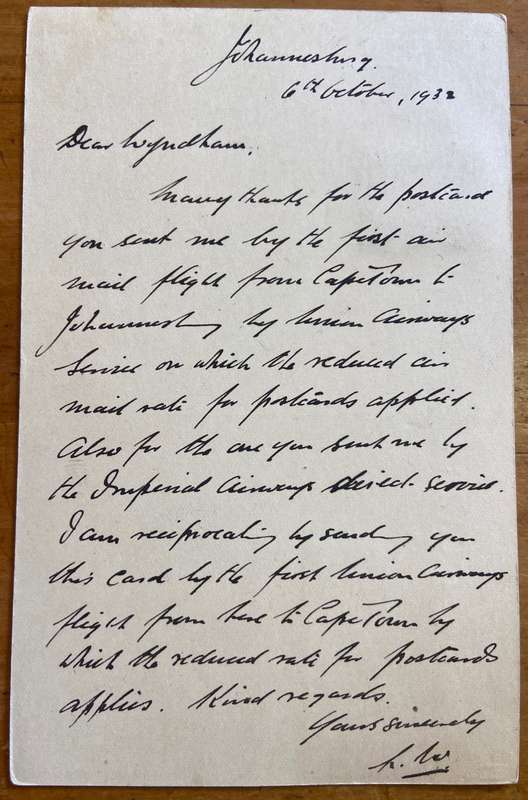 Johannesburg.
6th October, 1932
Dear Wyndham,
Many thanks for the postcard
you sent me by the first air
mail flight from Cape Town to
Johannesburg by Union Airways
Service on which the reduced air
mail rate for postcards applied.
Also for the one you sent me by
the Imperial Airways direct service.
I am reciprocating by sending you
this card by the first Union Airways
flight from here to Cape Town by
which the reduced rate for postcards
applies. Kind regards.
Yours sincerely